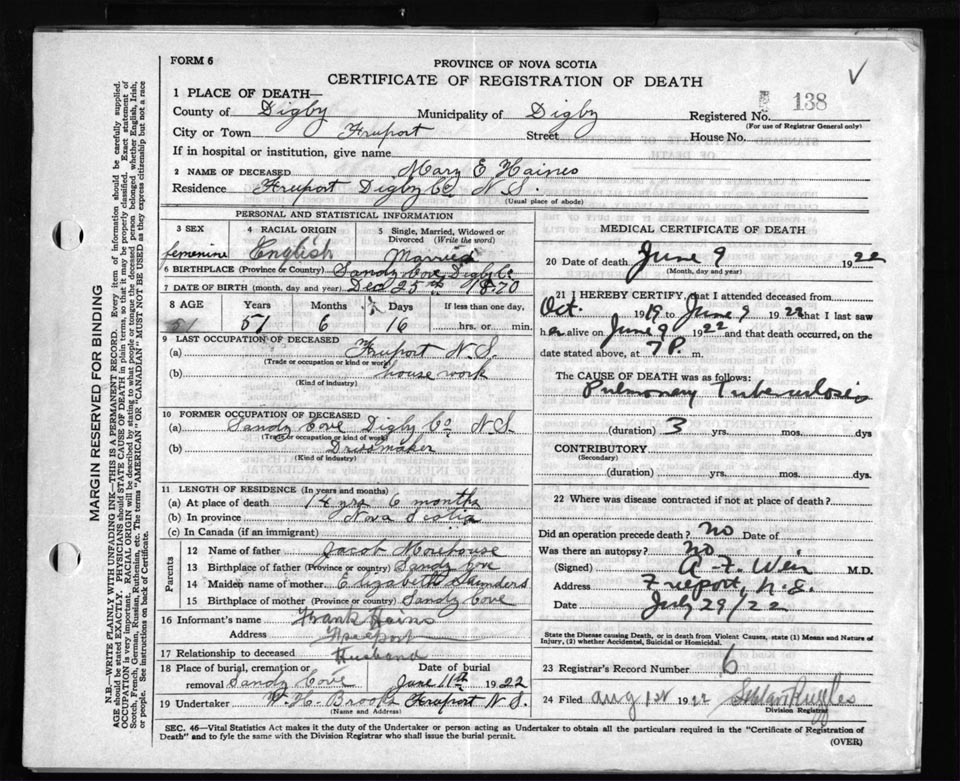 FORM 6
PROVINCE OF NOVA SCOTIA
CERTIFICATE OF REGISTRATION OF DEATH
1 PLACE OF DEATH—
County of Digby Municipality of Digby Registered No. 138
(For use of Registrar General only)
City or Town Freeport Street House No.
If in hospital or institution, give name
2 NAME OF DECEASED Mary E Haines
Residence Freeport Digby Co N.S.
(Usual place of abode)
PERSONAL AND STATISTICAL INFORMATION
3 SEX 4 RACIAL ORIGIN 5 Single, Married, Widowed or Divorced (Write the word)
femenine English Married
6 BIRTHPLACE (Province or Country) Sandy Cove Digby Co
7 DATE OF BIRTH (month, day and year) Dec 25th 1870
8 AGE Years Months Days If less than one day,
51 51 6 16 hrs. or min.
9 LAST OCCUPATION OF DECEASED
(a) Freeport N.S.
(Trade or occupation or kind of work)
(b) house work
(Kind of industry)
10 FORMER OCCUPATION OF DECEASED
(a) Sandy Cove Digby Co N.S.
(Trade or occupation or kind of work)
(b) Dressmaker
(Kind of industry)
11 LENGTH OF RESIDENCE (In years and months)
(a) At place of death 14 yrs 6 months
(b) In province Nova Scotia
(c) In Canada (if an immigrant)
Parents
12 Name of father Jacob Morehouse
13 Birthplace of father (Province or country) Sandy Cove
14 Maiden name of mother Elizabeth Saunders
15 Birthplace of mother (Province or country) Sandy Cove
16 Informant's name Frank Hains
Address Freeport
17 Relationship to deceased Husband
18 Place of burial, cremation or removal Sandy Cove Date of burial June 11th 1922
19 Undertaker W. H. Brooks Freeport N.S.
(Name and Address)
MEDICAL CERTIFICATE OF DEATH
20 Date of death June 9 1922
(Month, day and year)
21 I HEREBY CERTIFY, that I attended deceased from
Oct. 1919 to June 9 1922 that I last saw
her alive on June 9 1922 and that death occurred, on the
date stated above, at 7 P. m.
The CAUSE OF DEATH was as follows:
Pulmonary Tuberculosis
(duration) 3 yrs. mos. dys
CONTRIBUTORY
(Secondary)
(duration) yrs. mos. dys.
22 Where was disease contracted if not at place of death?
Did an operation precede death? no Date of
Was there an autopsy? no
(Signed) A. F. Weir M.D.
Address Freeport, N.S.
Date July 29/22
State the Disease causing Death, or in death from Violent Causes, state (1) Means and Nature of
Injury, (2) whether Accidental, Suicidal or Homicidal.
23 Registrar's Record Number 6
24 Filed Aug 1st 1922 Ruggles
Division Registrar
SEC. 46—Vital Statistics Act makes it the duty of the Undertaker or person acting as Undertaker to obtain all the particulars required in the "Certificate of Registration of
Death" and to fyle the same with the Division Registrar who shall issue the burial permit.
(OVER)
MARGIN RESERVED FOR BINDING
N.B.—WRITE PLAINLY WITH UNFADING INK—THIS IS A PERMANENT RECORD. Every item of information should be carefully supplied.
AGE should be stated EXACTLY. PHYSICIANS should STATE CAUSE OF DEATH in plain terms, so that it may be properly classified. Exact statement of
OCCUPATION is very important. RACIAL ORIGIN will be described by stating to what people or tongue the deceased person belonged whether English, Irish,
Scotch, French, German, Russian, Ruthenian, etc. The terms "AMERICAN" OR "CANADIAN" MUST NOT BE USED as they express citizenship but not a race
or people. See instructions on back of Certificate.